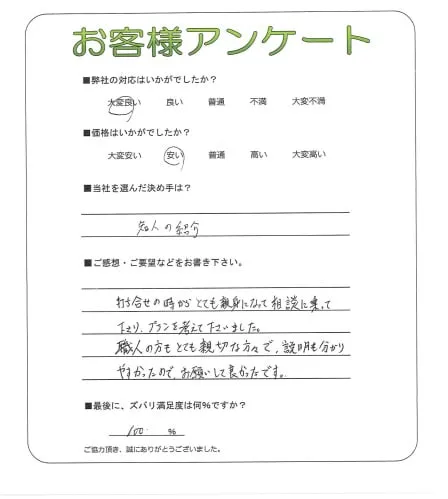 お客様アンケート
■弊社の対応はいかがでしたか？
大変良い 良い 普通 不満 大変不満
■価格はいかがでしたか？
大変安い 安い 普通 高い 大変高い
■当社を選んだ決め手は？
知人の紹介
■ご感想・ご要望などをお書き下さい。
打ち合せの時からとても親身になって相談に乗って
下さり、プランを考えて下さいました。
職人の方もとても親切な方々で、説明も分かり
やすかったので、お願いして良かったです。
■最後に、ズバリ満足度は何%ですか？
100 %
ご協力頂き、誠にありがとうございました。